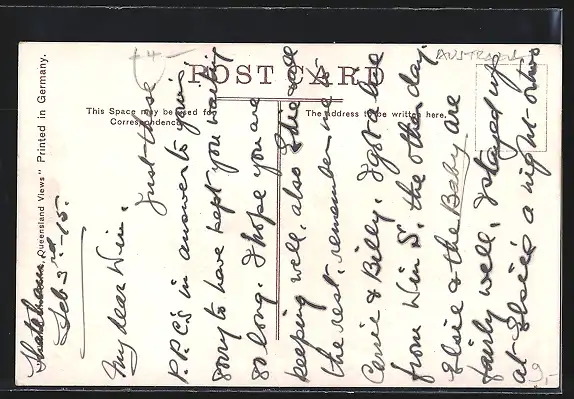 AUSTRALIEN
4-
POST CARD
This Space may be used for
Correspondence.
The address to be written here.
Queensland Views" Printed in Germany.
Feb. 3rd -15.
My dear Win.
Just these
P.P.C's in answer to yours
sorry to have kept you waiting
so long. I hope you are
keeping well, also Elsie &
the rest. remember me to
Carrie & Billy. I got a
from Win S. the other day.
Elsie & the Baby are
fairly well, I stayed up
at Elsie's a night or two
9,-